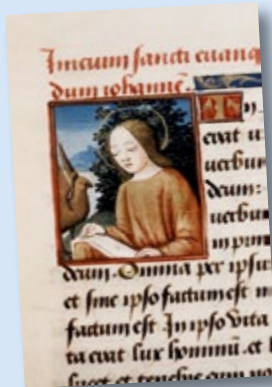 Inicium sancti euang
dum iohannē.
In
erat u
uerbum
deum:
uerbum
in prin
deum. Omnia per ipsum
et sine ipso factum est n
factum est In ipso vita
ta erat lux hominū. et l
lucet et tenebre eum no